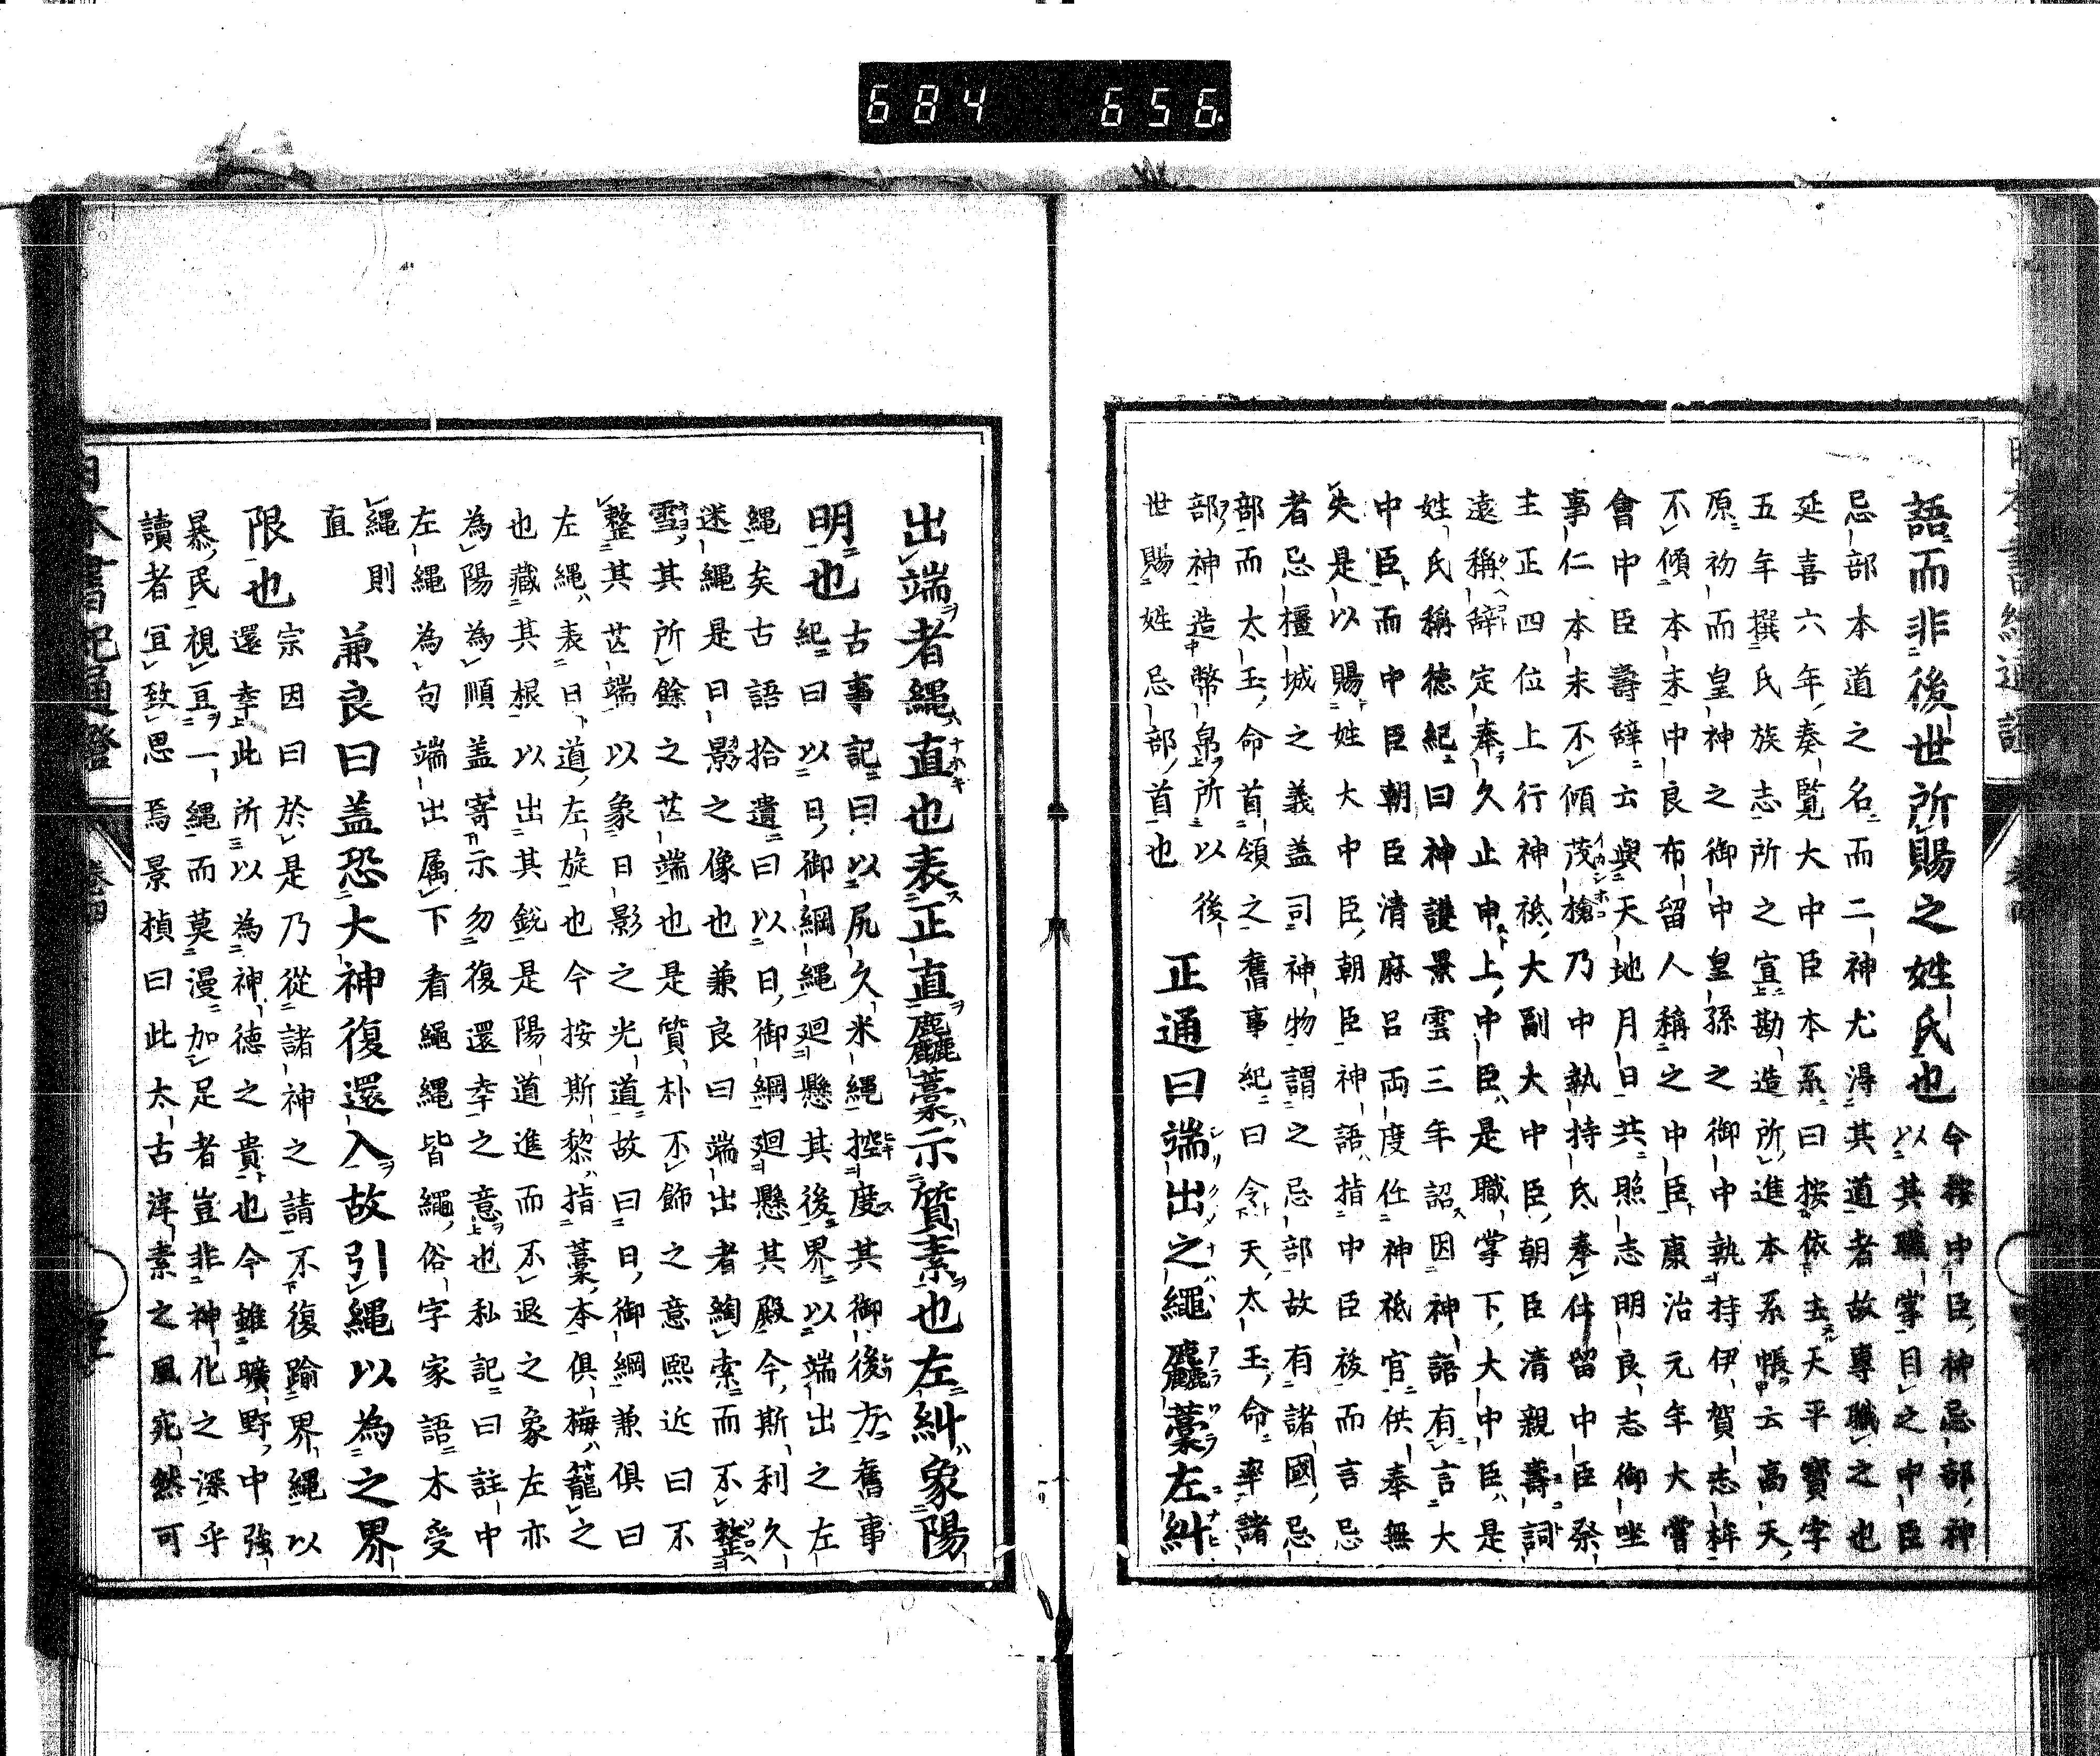 684 656
語而非後世所賜之姓氏也
今按中臣神忌部神
以其職掌目之中臣
忌部本道之名而二神尤得其道者故專職之也
延喜六年奏覽大中臣本系曰按依去天平寶字
五年撰氏族志所之宣勘造所進本系帳云高天
原初而皇神之御中皇孫之御中執持伊賀志桙
不傾本末中良布留人稱之中臣康治元年大嘗
會中臣壽辭云與天地月日共照志明良志御坐
事仁本末不傾茂槍乃中執持氐奉仕留中臣祭
主正四位上行神祇大副大中臣朝臣清親壽詞
遠稱辭定奉久止申上中臣是職掌下大中臣是
姓氏稱德紀曰神護景雲三年詔因神語有言大
中臣而中臣朝臣清麻呂両度任神祇官供奉無
失是以賜姓大中臣朝臣神語指中臣祓而言忌
者忌橿城之義蓋司神物謂之忌部故有諸國忌
部而太玉命首領之舊事紀曰令天太玉命率諸
部神造幣帛所以後
世賜姓忌部首也
正通曰端出之繩麤藁左糾
出端者繩直也表正直麤藁示質素也左糾象陽
明也
古事記曰以尻久米繩控度其御後方舊事
紀曰以日御綱繩廻懸其後界以端出之左
繩矣古語拾遺曰以日御綱廻懸其殿今斯利久
迷繩是日影之像也兼良曰端出者綯索而不整
雪其所餘之茋端也是質朴不飾之意熙近曰不
整其茋端以象日影之光道故曰日御綱兼俱曰
左繩表日道左旋也今按斯黎指藁本俱梅籠之
也藏其根以出其銳是陽道進而不退之象左亦
為陽為順蓋寄示勿復還幸之意也私記曰註中
左繩為句端出属下看繩繩皆繩俗字家語木受
繩則
直
兼良曰蓋恐大神復還入故引繩以為之界
限也
宗因曰於是乃從諸神之請不復踰界繩以
還幸此所以為神德之貴也今雖曠野中強
暴民視亘一繩而莫漫加足者豈非神化之深乎
讀者宜致思焉景楨曰此太古淳素之風宛然可
日本書紀通證 卷四